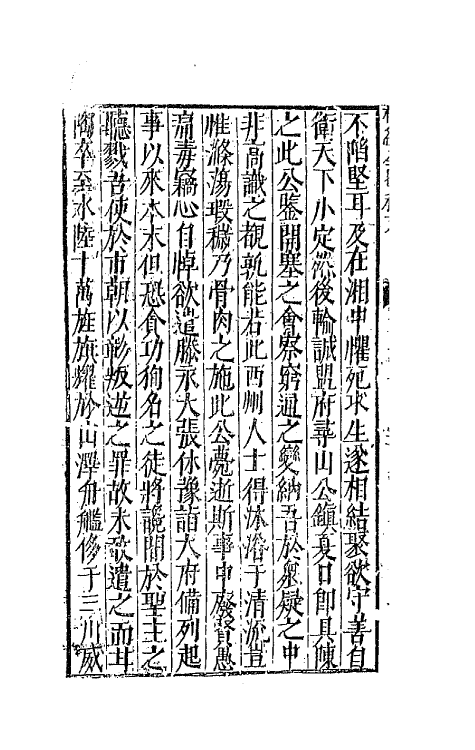 不陷堅耳及在湘中懼死求生遂相結聚欲守善自
衛天下小定然後輸誠盟府尋山公鎮夏口即具陳
之此公鑒開塞之會察窮通之變納吾於衆疑之中
非高識之覩孰能若此西州人士得沐浴于清流豈
惟滌蕩瑕穢乃骨肉之施此公薨逝斯事中廢賢愚
痛毒竊心自悼欲遣滕永文張休豫詣大府備列起
事以來本末但恐貪功狥名之徒將讒閒於聖主之
聽戮吾使於市朝以彰叛逆之罪故未敢遣之而甘
陶卒至水陸十萬旌旗耀於山澤舟艦侈于三川威